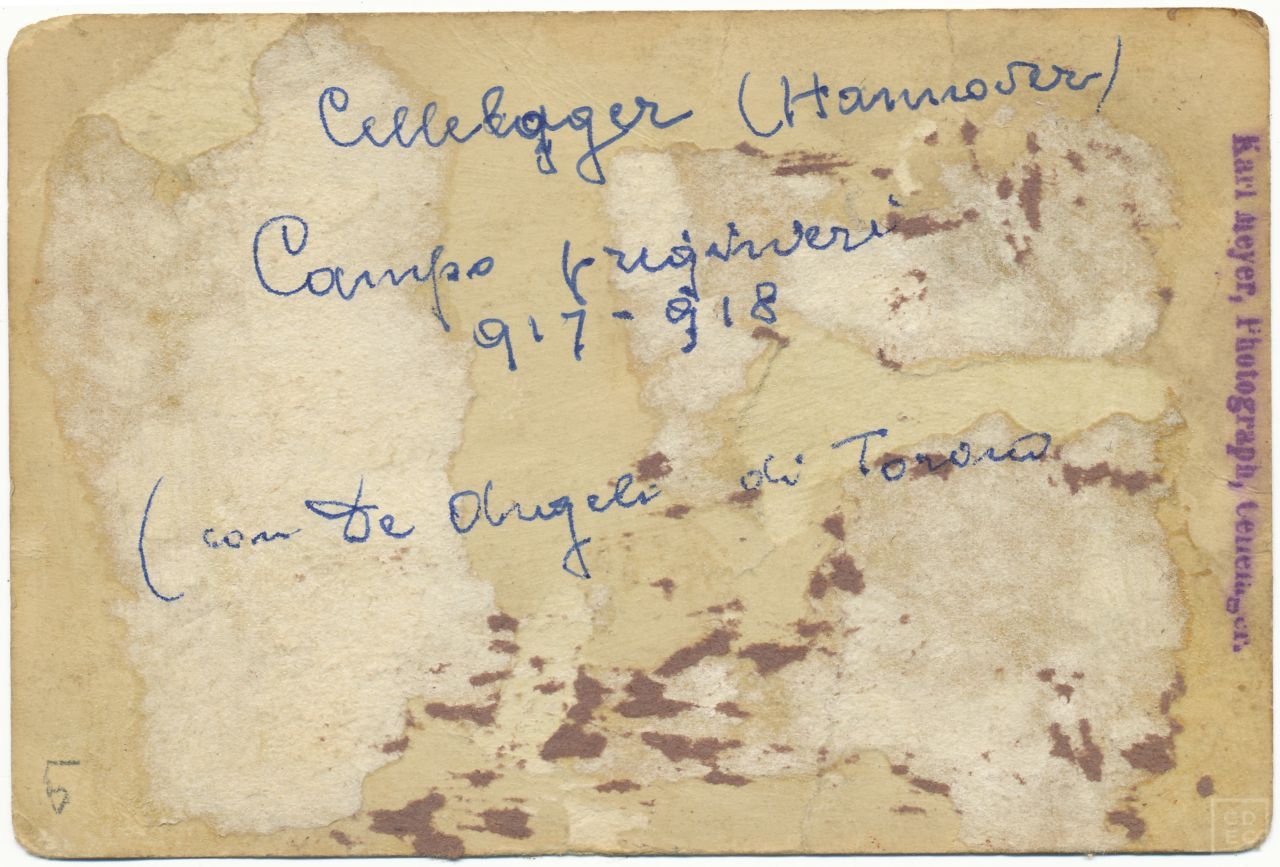 Cellelager (Hannover)
Campo prigionieri
917-918
(con De Angeli di Torino
Karl Meyer, Photograph,
5
CDEC